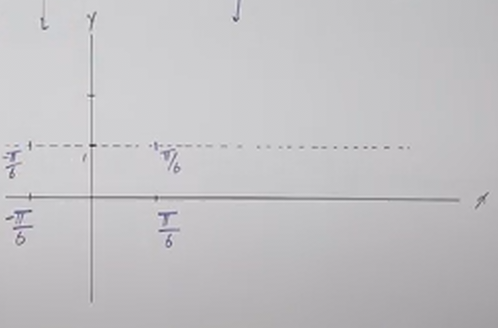 Y
-π/6
1
π/6
x
-π/6
π/6